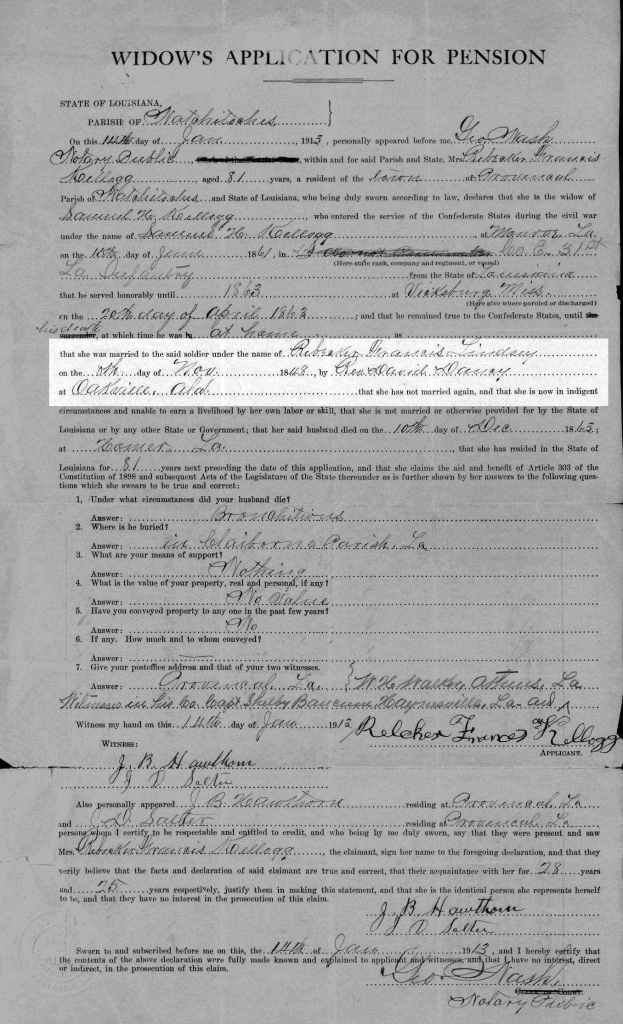 WIDOW'S APPLICATION FOR PENSION
STATE OF LOUISIANA,
PARISH OF Natchitoches }
On this 14th day of Jan 1913, personally appeared before me Geo Nash
Notary Public, within and for said Parish and State, Mrs. Rebecker Francis
Kellogg aged 81 years, a resident of the town of Provencal
Parish of Natchitoches and State of Louisiana, who being duly sworn according to law, declares that she is the widow of
Samuel H. Kellogg, who entered the service of the Confederate States during the civil war
under the name of Samuel H. Kellogg at Monroe, La.
on the day of June 1861, in Co. C. 31st
(Here state rank, company and regiment, or vessel)
La Infantry from the State of Louisiana
that he served honorably until 1863 at Vicksburg Miss.
(Here state where paroled or discharged)
on the 20th day of April 1863; and that he remained true to the Confederate States, until the
his death
surrender, at which time he was at home as
that she was married to the said soldier under the name of Rebecker Francis Lindsey
on the day of Nov. 1848, by Rev David Dancy
at Oakville, Ala. that she has not married again, and that she is now in indigent
circumstances and unable to earn a livelihood by her own labor or skill, that she is not married or otherwise provided for by the State of
Louisiana or by any other State or Government; that her said husband died on the 10th day of Dec 1863,
at Homer, La, that she has resided in the State of
Louisiana for 81 years next preceding the date of this application, and that she claims the aid and benefit of Article 303 of the
Constitution of 1898 and subsequent Acts of the Legislature of the State thereunder as is further shown by her answers to the following
questions which she swears to be true and correct:
1. Under what circumstances did your husband die?
Answer:
2. Where is he buried?
Answer: in Claiborne Parish, La
3. What are your means of support?
Answer: Nothing
4. What is the value of your property, real and personal, if any?
Answer: No Value
5. Have you conveyed property to any one in the past few years?
Answer: No
6. If any. How much and to whom conveyed?
Answer:
7. Give your postoffice address and that of your two witnesses.
Answer: Provencal, La. } W. H. Walker, Athens, La
Witnesses in his Co Capt Shelby Haynesville, La.
Witness my hand on 14th day of Jan 1913
Relcher Frances Kellogg
APPLICANT.
WITNESS:
J. B. Hawthorn
J D Salter
Also personally appeared J B Hawthorn residing at Provencal, La
and J. D. Salter residing at Provencal, La
persons whom I certify to be respectable and entitled to credit, and who being by me duly sworn, say that they were present and saw
Mrs. Rebecker Francis Kellogg, the claimant, sign her name to the foregoing declaration, and that they
verily believe that the facts and declaration of said claimant are true and correct, that their acquaintance with her for 28 years
and 25 years respectively, justify them in making this statement, and that she is the identical person she represents herself
to be, and that they have no interest in the prosecution of this claim.
J. B. Hawthorn
J D Salter
Sworn to and subscribed before me on this, the 14th of Jan 1913, and I hereby certify that
the contents of the above declaration were fully made known and explained to applicant and witnesses, and that I have no interest, direct
or indirect, in the prosecution of this claim.
Geo Nash,
Notary Public